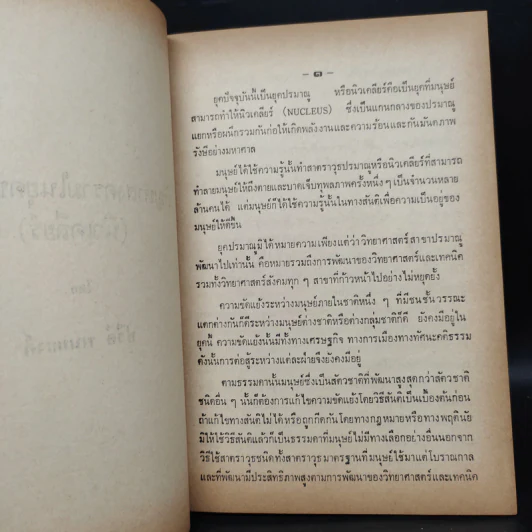 – ๑ –
ยุคปัจจุบันนี้เป็นยุคปรมาณู หรือนิวเคลียร์คือเป็นยุคที่มนุษย์
สามารถทำให้นิวเคลียร์ (NUCLEUS) ซึ่งเป็นแกนกลางของปรมาณู
แยกหรือผนึกรวมกันก่อให้เกิดพลังงานและความร้อนและกัมมันตภาพ
รังษีอย่างมหาศาล
มนุษย์ได้ใช้ความรู้นั้นทำสาตราวุธปรมาณูหรือนิวเคลียร์ที่สามารถ
ทำลายมนุษย์ให้ถึงตายและบาดเจ็บทุพลภาพครั้งหนึ่งๆ เป็นจำนวนหลาย
ล้านคนได้ แต่มนุษย์ก็ได้ใช้ความรู้นั้นในทางสันติเพื่อความเป็นอยู่ของ
มนุษย์ให้ดีขึ้น
ยุคปรมาณูมิได้หมายความเพียงแต่ว่า วิทยาศาสตร์สาขาปรมาณู
พัฒนาไปเท่านั้น คือหมายรวมถึงการพัฒนาของวิทยาศาสตร์และเทคนิค
รวมทั้งวิทยาศาสตร์สังคมทุก ๆ สาขาที่ก้าวหน้าไปอย่างไม่หยุดยั้ง
ความขัดแย้งระหว่างมนุษย์ภายในชาติหนึ่ง ๆ ที่มีชนชั้นวรรณะ
แตกต่างกันก็ดีระหว่างมนุษย์ต่างชาติหรือต่างกลุ่มชาติก็ดี ยังคงมีอยู่ใน
ยุคนี้ ความขัดแย้งนั้นมีทั้งทางเศรษฐกิจ ทางการเมืองทางทัศนะคติธรรม
ดังนั้นการต่อสู้ระหว่างแต่ละฝ่ายจึงยังคงมีอยู่
ตามธรรมดานั้นมนุษย์ซึ่งเป็นสัตวชาติที่พัฒนาสูงสุดกว่าสัตวชาติ
ชนิดอื่น ๆ นั้นก็ต้องการแก้ไขความขัดแย้งโดยวิธีสันติเป็นเบื้องต้นก่อน
ถ้าแก้ไขทางสันติไม่ได้หรือถูกกีดกันโดยทางกฎหมายหรือทางพฤตินัย
มิให้ใช้วิธีสันติแล้วก็เป็นธรรมดาที่มนุษย์ไม่มีทางเลือกอย่างอื่นนอกจาก
วิธีใช้สาตราวุธชนิดทั้งสาตราวุธมาตรฐานที่มนุษย์ใช้มาแต่โบราณกาล
และที่พัฒนามีประสิทธิภาพสูงตามการพัฒนาของวิทยาศาสตร์และเทคนิค